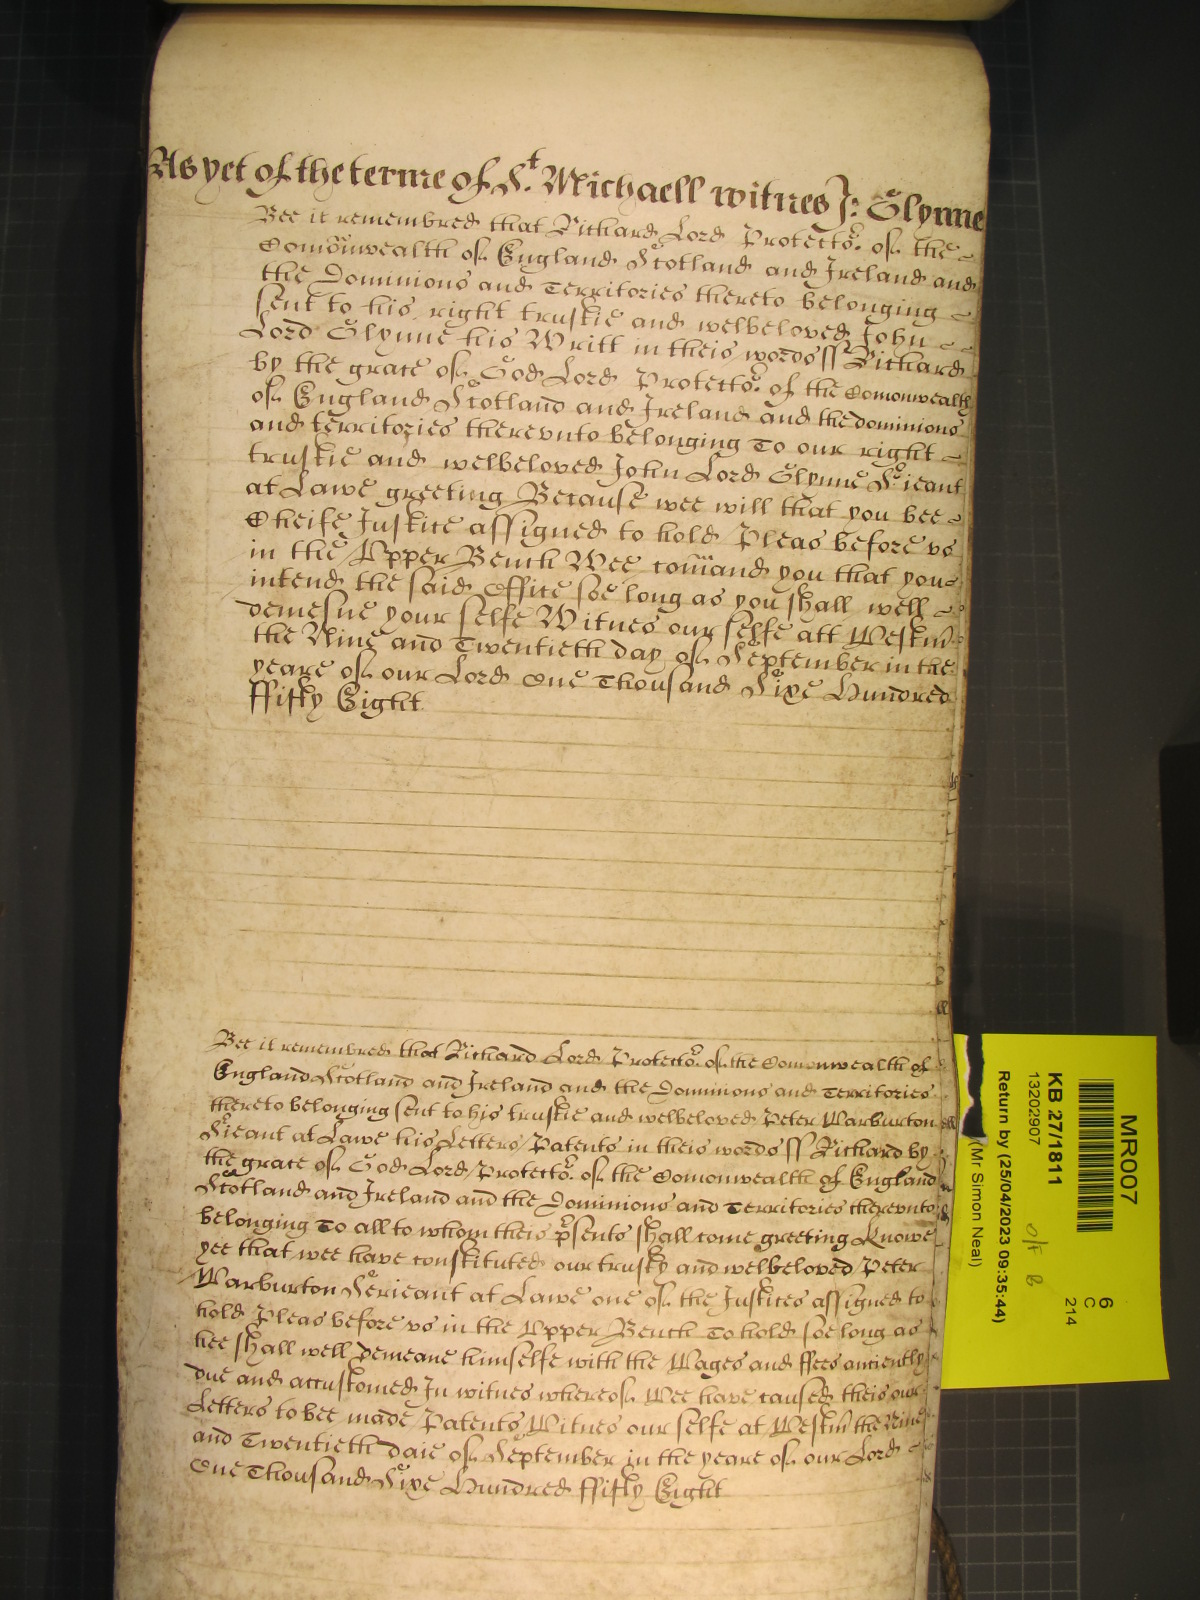 As yet of the terme of St. Michaell witnes J: Glynne
Bee it remembred that Richard Lord Protector. of the
Comonwealth of England Scotland and Ireland and
the Dominions and Territories thereto belonging
sent to his right trustie and welbeloved John
Lord Glynne his Writt in theis words ss Richard
by the grace of God Lord Protector. of the Comonwealth
of England Scotland and Ireland and the dominions
and territories therevnto belonging To our right
trustie and welbeloved John Lord Glynne Serieant
at Lawe greeting Because wee will that you bee
Cheife Justice assigned to hold Pleas before vs
in the Vpper Bench Wee comand you that you
intend the said Office soe long as you shall well
demesne your selfe Witnes our selfe att Westm
the Nine and Twentieth day of September in the
yeare of our Lord One Thousand Sixe Hundred
ffifty Eight
Bee it remembred that Richard Lord Protector. of the Comonwealth of
England Scotland and Ireland and the Dominions and Territories
thereto belonging sent to his trustie and welbeloved Peter Warburton
Serieant at Lawe his Letters Patents in theis words ss Richard by
the grace of God Lord Protector. of the Comonwealth of England
Scotland and Ireland and the Dominions and Territories therevnto
belonging To all to whom theis psents shall come greeting Knowe
yee that wee have constituted our trusty and welbeloved Peter
Warburton Serieant at Lawe one of the Justices assigned to
hold Pleas before vs in the Vpper Bench To hold soe long as
hee shall well demeane himselfe with the Wages and ffees anciently
due and accustomed In witnes whereof Wee have caused theis our
Letters to bee made Patents Witnes our selfe at Westm the Nine
and Twentieth daie of September in the yeare of our Lord
One Thousand Sixe Hundred ffifty Eight
MR007
6
C
214
KB 27/1811
13202907
Return by (25/04/2023 09:35:44)
(Mr Simon Neal)